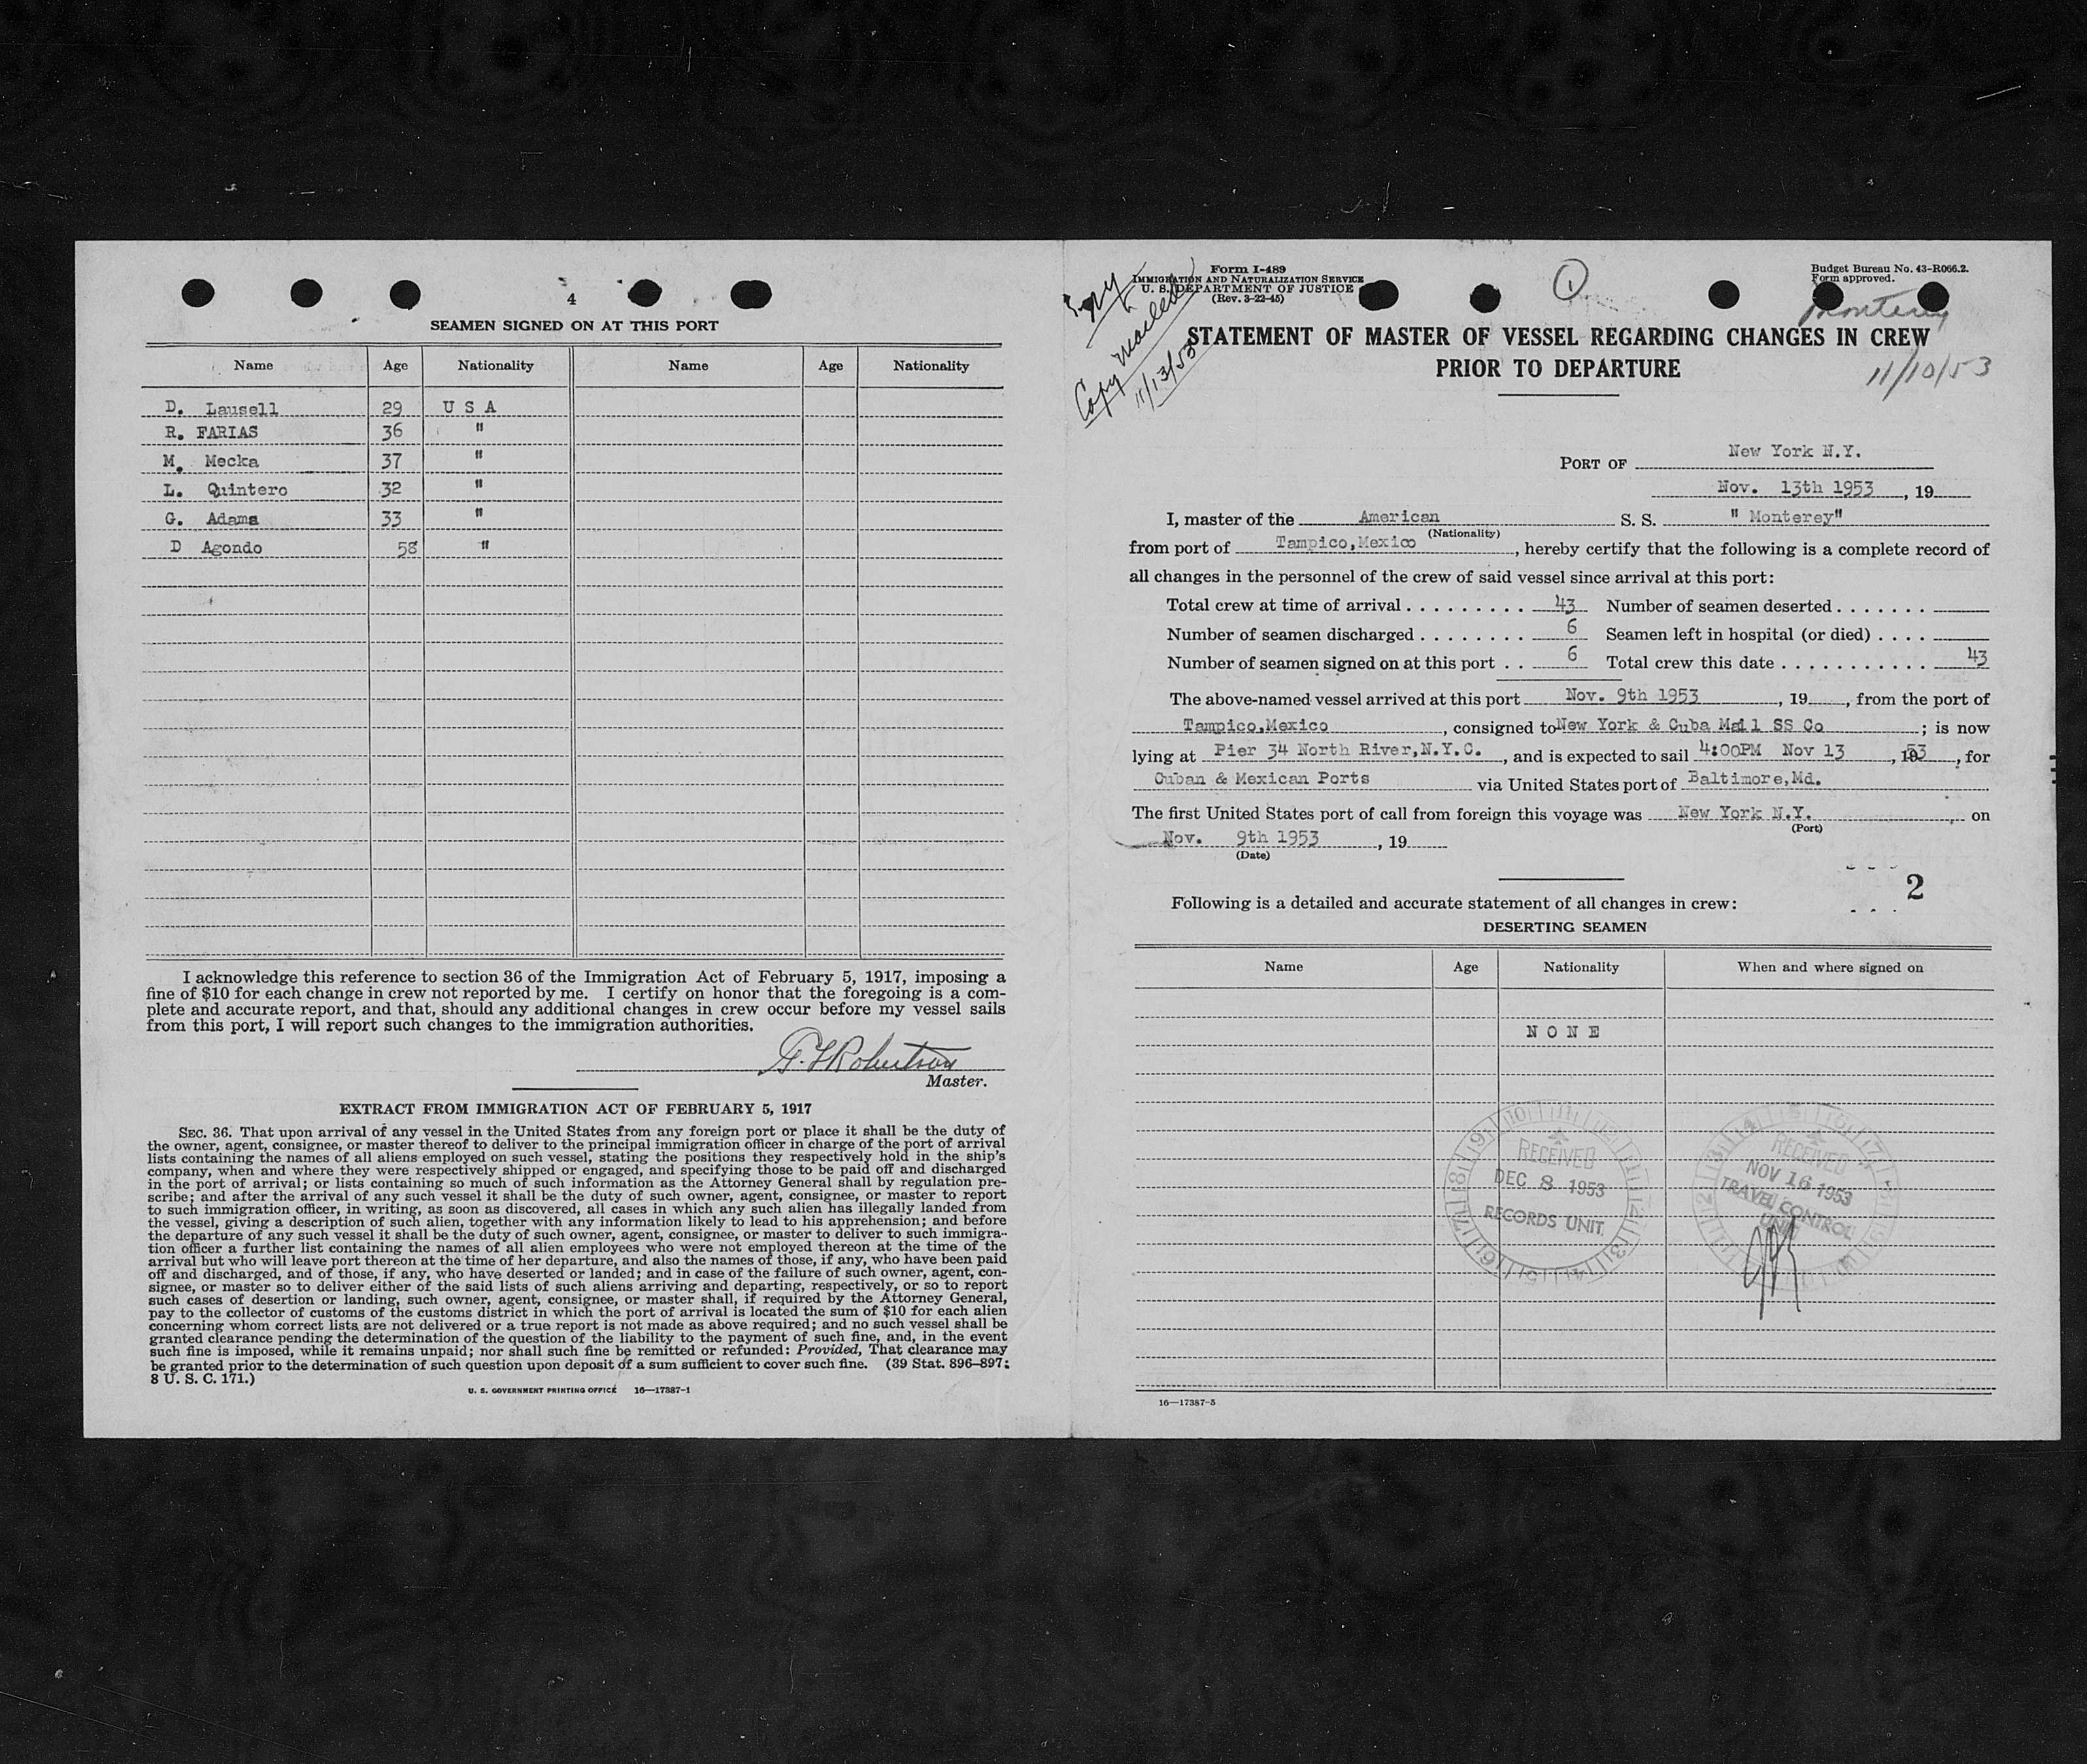 4
SEAMEN SIGNED ON AT THIS PORT
Name Age Nationality Name Age Nationality
D. Lausell 29 U S A
R. FARIAS 36 "
M. Mecka 37 "
L. Quintero 32 "
G. Adams 33 "
D Agondo 58 "
I acknowledge this reference to section 36 of the Immigration Act of February 5, 1917, imposing a
fine of $10 for each change in crew not reported by me. I certify on honor that the foregoing is a com-
plete and accurate report, and that, should any additional changes in crew occur before my vessel sails
from this port, I will report such changes to the immigration authorities.
Robertson
Master.
EXTRACT FROM IMMIGRATION ACT OF FEBRUARY 5, 1917
SEC. 36. That upon arrival of any vessel in the United States from any foreign port or place it shall be the duty of
the owner, agent, consignee, or master thereof to deliver to the principal immigration officer in charge of the port of arrival
lists containing the names of all aliens employed on such vessel, stating the positions they respectively hold in the ship's
company, when and where they were respectively shipped or engaged, and specifying those to be paid off and discharged
in the port of arrival; or lists containing so much of such information as the Attorney General shall by regulation pre-
scribe; and after the arrival of any such vessel it shall be the duty of such owner, agent, consignee, or master to report
to such immigration officer, in writing, as soon as discovered, all cases in which any such alien has illegally landed from
the vessel, giving a description of such alien, together with any information likely to lead to his apprehension; and before
the departure of any such vessel it shall be the duty of such owner, agent, consignee, or master to deliver to such immigra-
tion officer a further list containing the names of all alien employees who were not employed thereon at the time of the
arrival but who will leave port thereon at the time of her departure, and also the names of those, if any, who have been paid
off and discharged, and of those, if any, who have deserted or landed; and in case of the failure of such owner, agent, con-
signee, or master so to deliver either of the said lists of such aliens arriving and departing, respectively, or so to report
such cases of desertion or landing, such owner, agent, consignee, or master shall, if required by the Attorney General,
pay to the collector of customs of the customs district in which the port of arrival is located the sum of $10 for each alien
concerning whom correct lists are not delivered or a true report is not made as above required; and no such vessel shall be
granted clearance pending the determination of the question of the liability to the payment of such fine, and, in the event
such fine is imposed, while it remains unpaid; nor shall such fine be remitted or refunded: Provided, That clearance may
be granted prior to the determination of such question upon deposit of a sum sufficient to cover such fine. (39 Stat. 896-897;
8 U. S. C. 171.)
U. S. GOVERNMENT PRINTING OFFICE 16—17387-1
Form I-489
IMMIGRATION AND NATURALIZATION SERVICE
U. S. DEPARTMENT OF JUSTICE
(Rev. 3-22-45)
Copy mailed
11/13/53
1
Budget Bureau No. 43-R066.2.
Form approved.
Monterey
11/10/53
STATEMENT OF MASTER OF VESSEL REGARDING CHANGES IN CREW
PRIOR TO DEPARTURE
PORT OF New York N.Y.
Nov. 13th 1953, 19
I, master of the American S. S. " Monterey"
(Nationality)
from port of Tampico,Mexico, hereby certify that the following is a complete record of
all changes in the personnel of the crew of said vessel since arrival at this port:
Total crew at time of arrival . . . . . . . . . 43 Number of seamen deserted . . . . . . .
Number of seamen discharged . . . . . . . . 6 Seamen left in hospital (or died) . . . .
Number of seamen signed on at this port . . 6 Total crew this date . . . . . . . . . . . 43
The above-named vessel arrived at this port Nov. 9th 1953, 19, from the port of
Tampico,Mexico, consigned to New York & Cuba Mail SS Co; is now
lying at Pier 34 North River,N.Y.C., and is expected to sail 4:00PM Nov 13, 1953, for
Cuban & Mexican Ports via United States port of Baltimore,Md.
The first United States port of call from foreign this voyage was New York N.Y., on
(Port)
Nov. 9th 1953, 19
(Date)
2
Following is a detailed and accurate statement of all changes in crew:
DESERTING SEAMEN
Name Age Nationality When and where signed on
N O N E
RECEIVED
DEC 8 1953
RECORDS UNIT
RECEIVED
NOV 16 1953
TRAVEL CONTROL
UNIT
16—17387-5